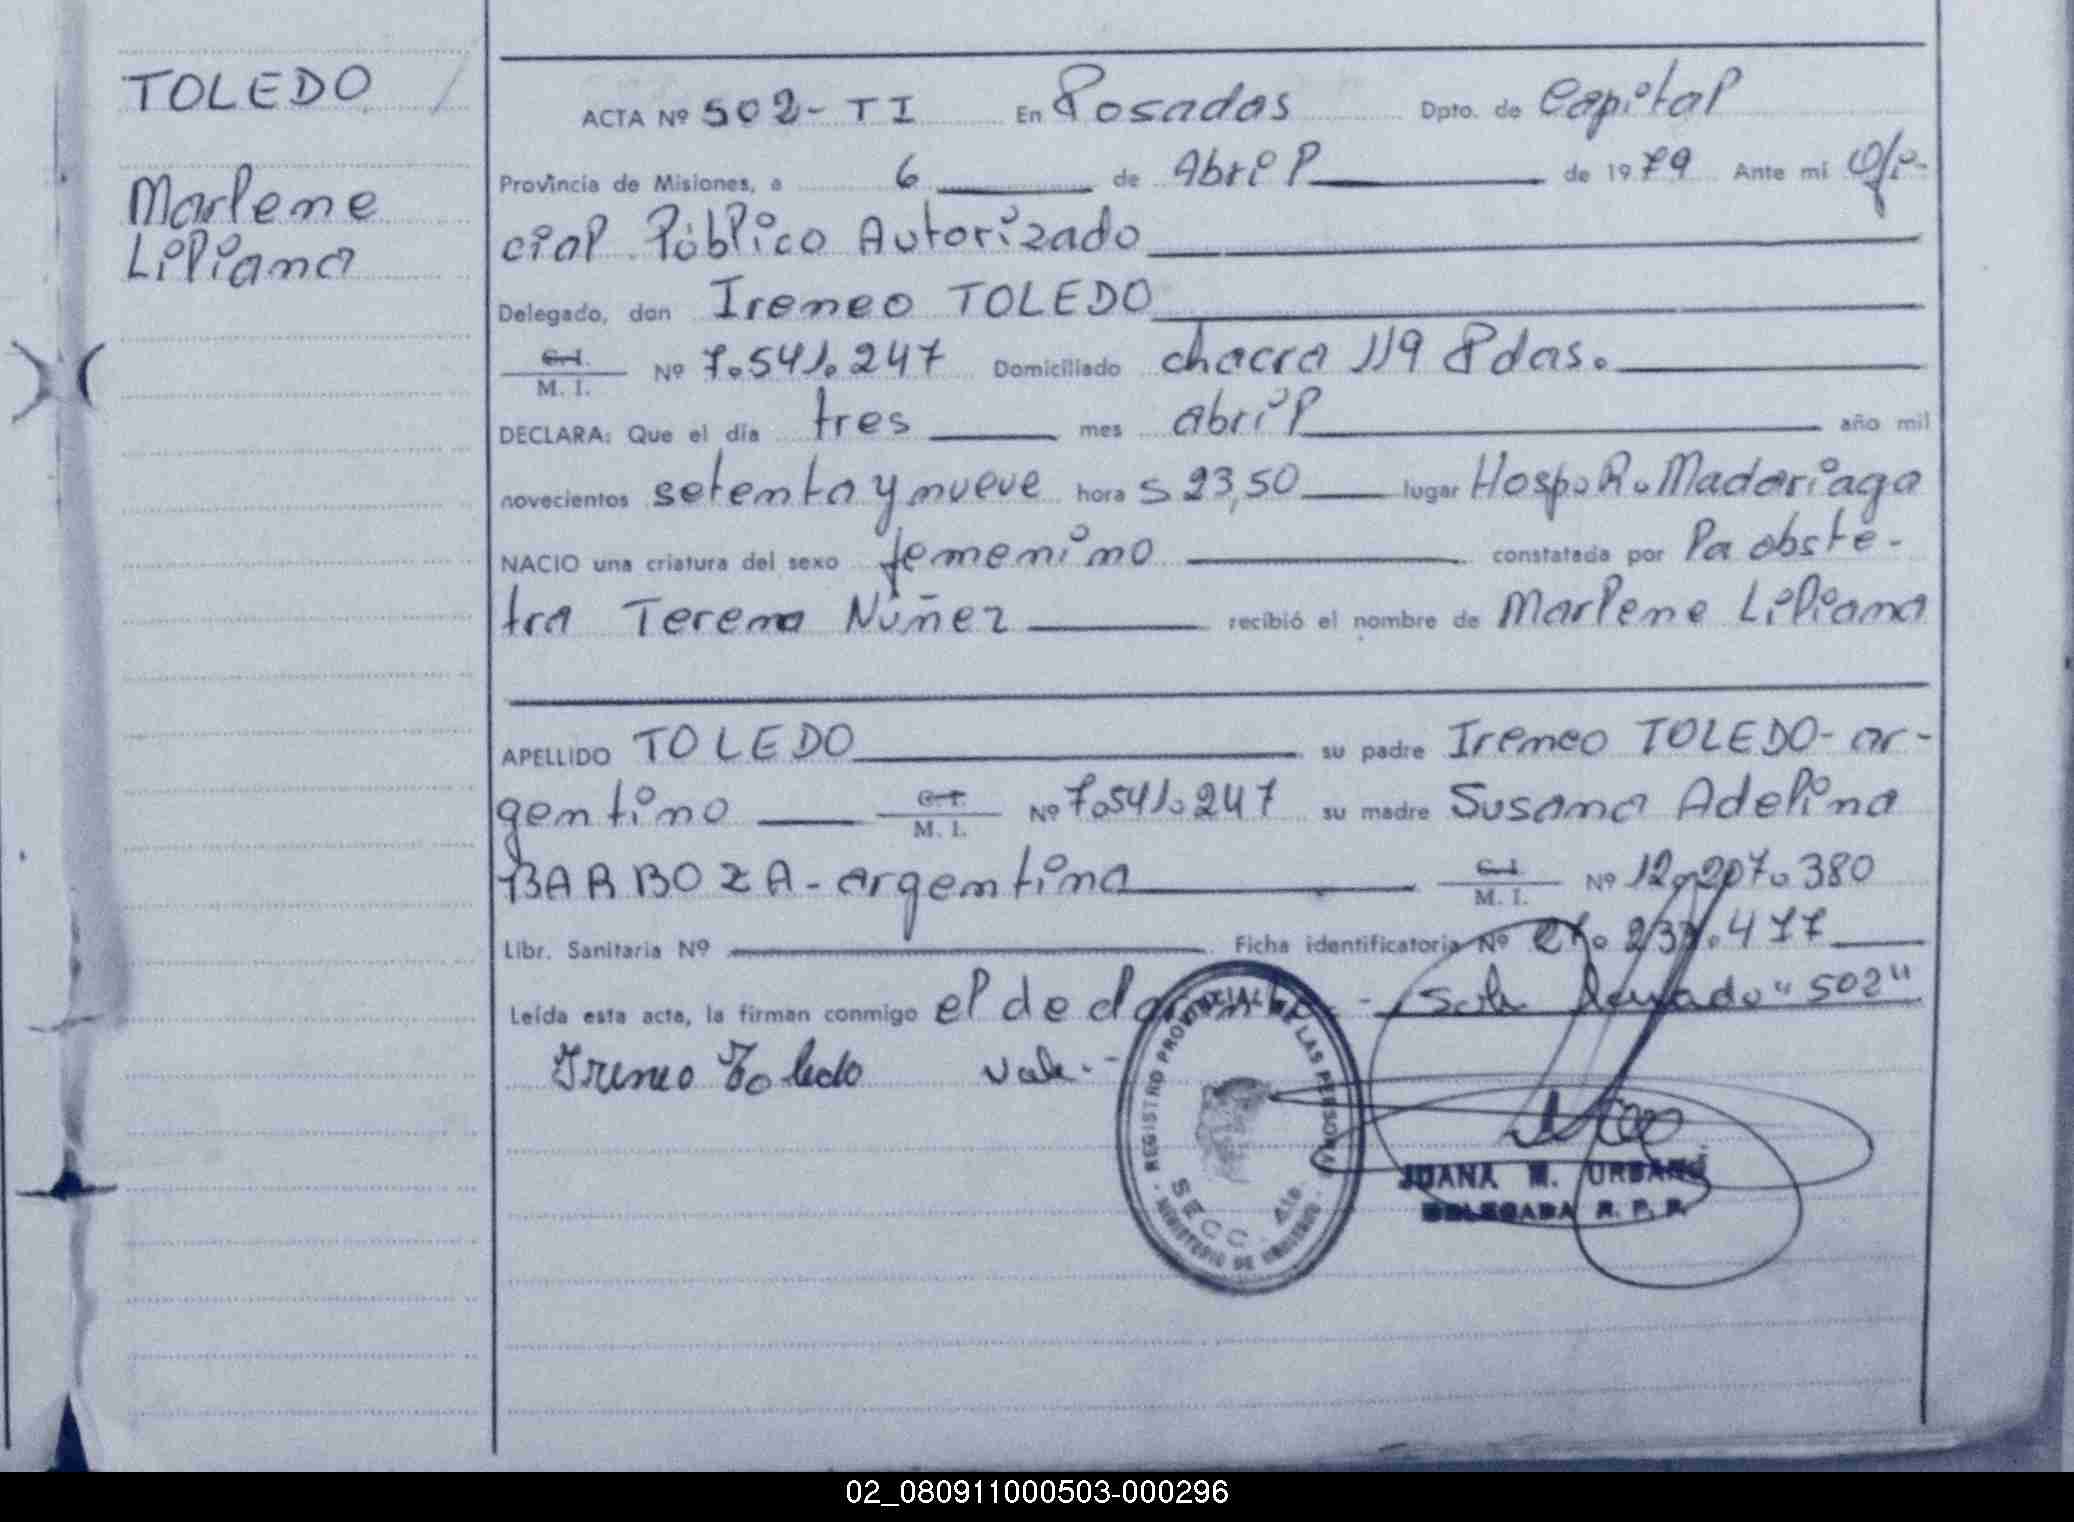 TOLEDO
Marlene
Liliana
ACTA Nº 502- TI En Posadas Dpto. de Capital
Provincia de Misiones, a 6 de Abril de 1979 Ante mi Ofi-
cial Público Autorizado
Delegado, don Ireneo TOLEDO
C.I. M. I. Nº 7.541.247 Domiciliado chacra 119 Pdas.
DECLARA: Que el día tres mes abril año mil
novecientos setenta y nueve hora s 23,50 lugar Hosp. R. Madariaga
NACIO una criatura del sexo femenino constatada por la obste-
tra Teresa Núñez recibió el nombre de Marlene Liliana
APELLIDO TOLEDO su padre Ireneo TOLEDO- ar-
gentino C.I. M. I. Nº 7.541.247 su madre Susana Adelina
BARBOZA - argentina C.I. M. I. Nº 12.207.380
Libr. Sanitaria Nº Ficha identificatoria Nº 27.233.477
Leída esta acta, la firman conmigo el declarante.- "502"
Ireneo Toledo Vale.-
REGISTRO PROVINCIAL DE LAS PERSONAS
SECC. 4ta.
MINISTERIO DE GOBIERNO
JUANA M. URBANO
DELEGADA R. P. P.
02_080911000503-000296